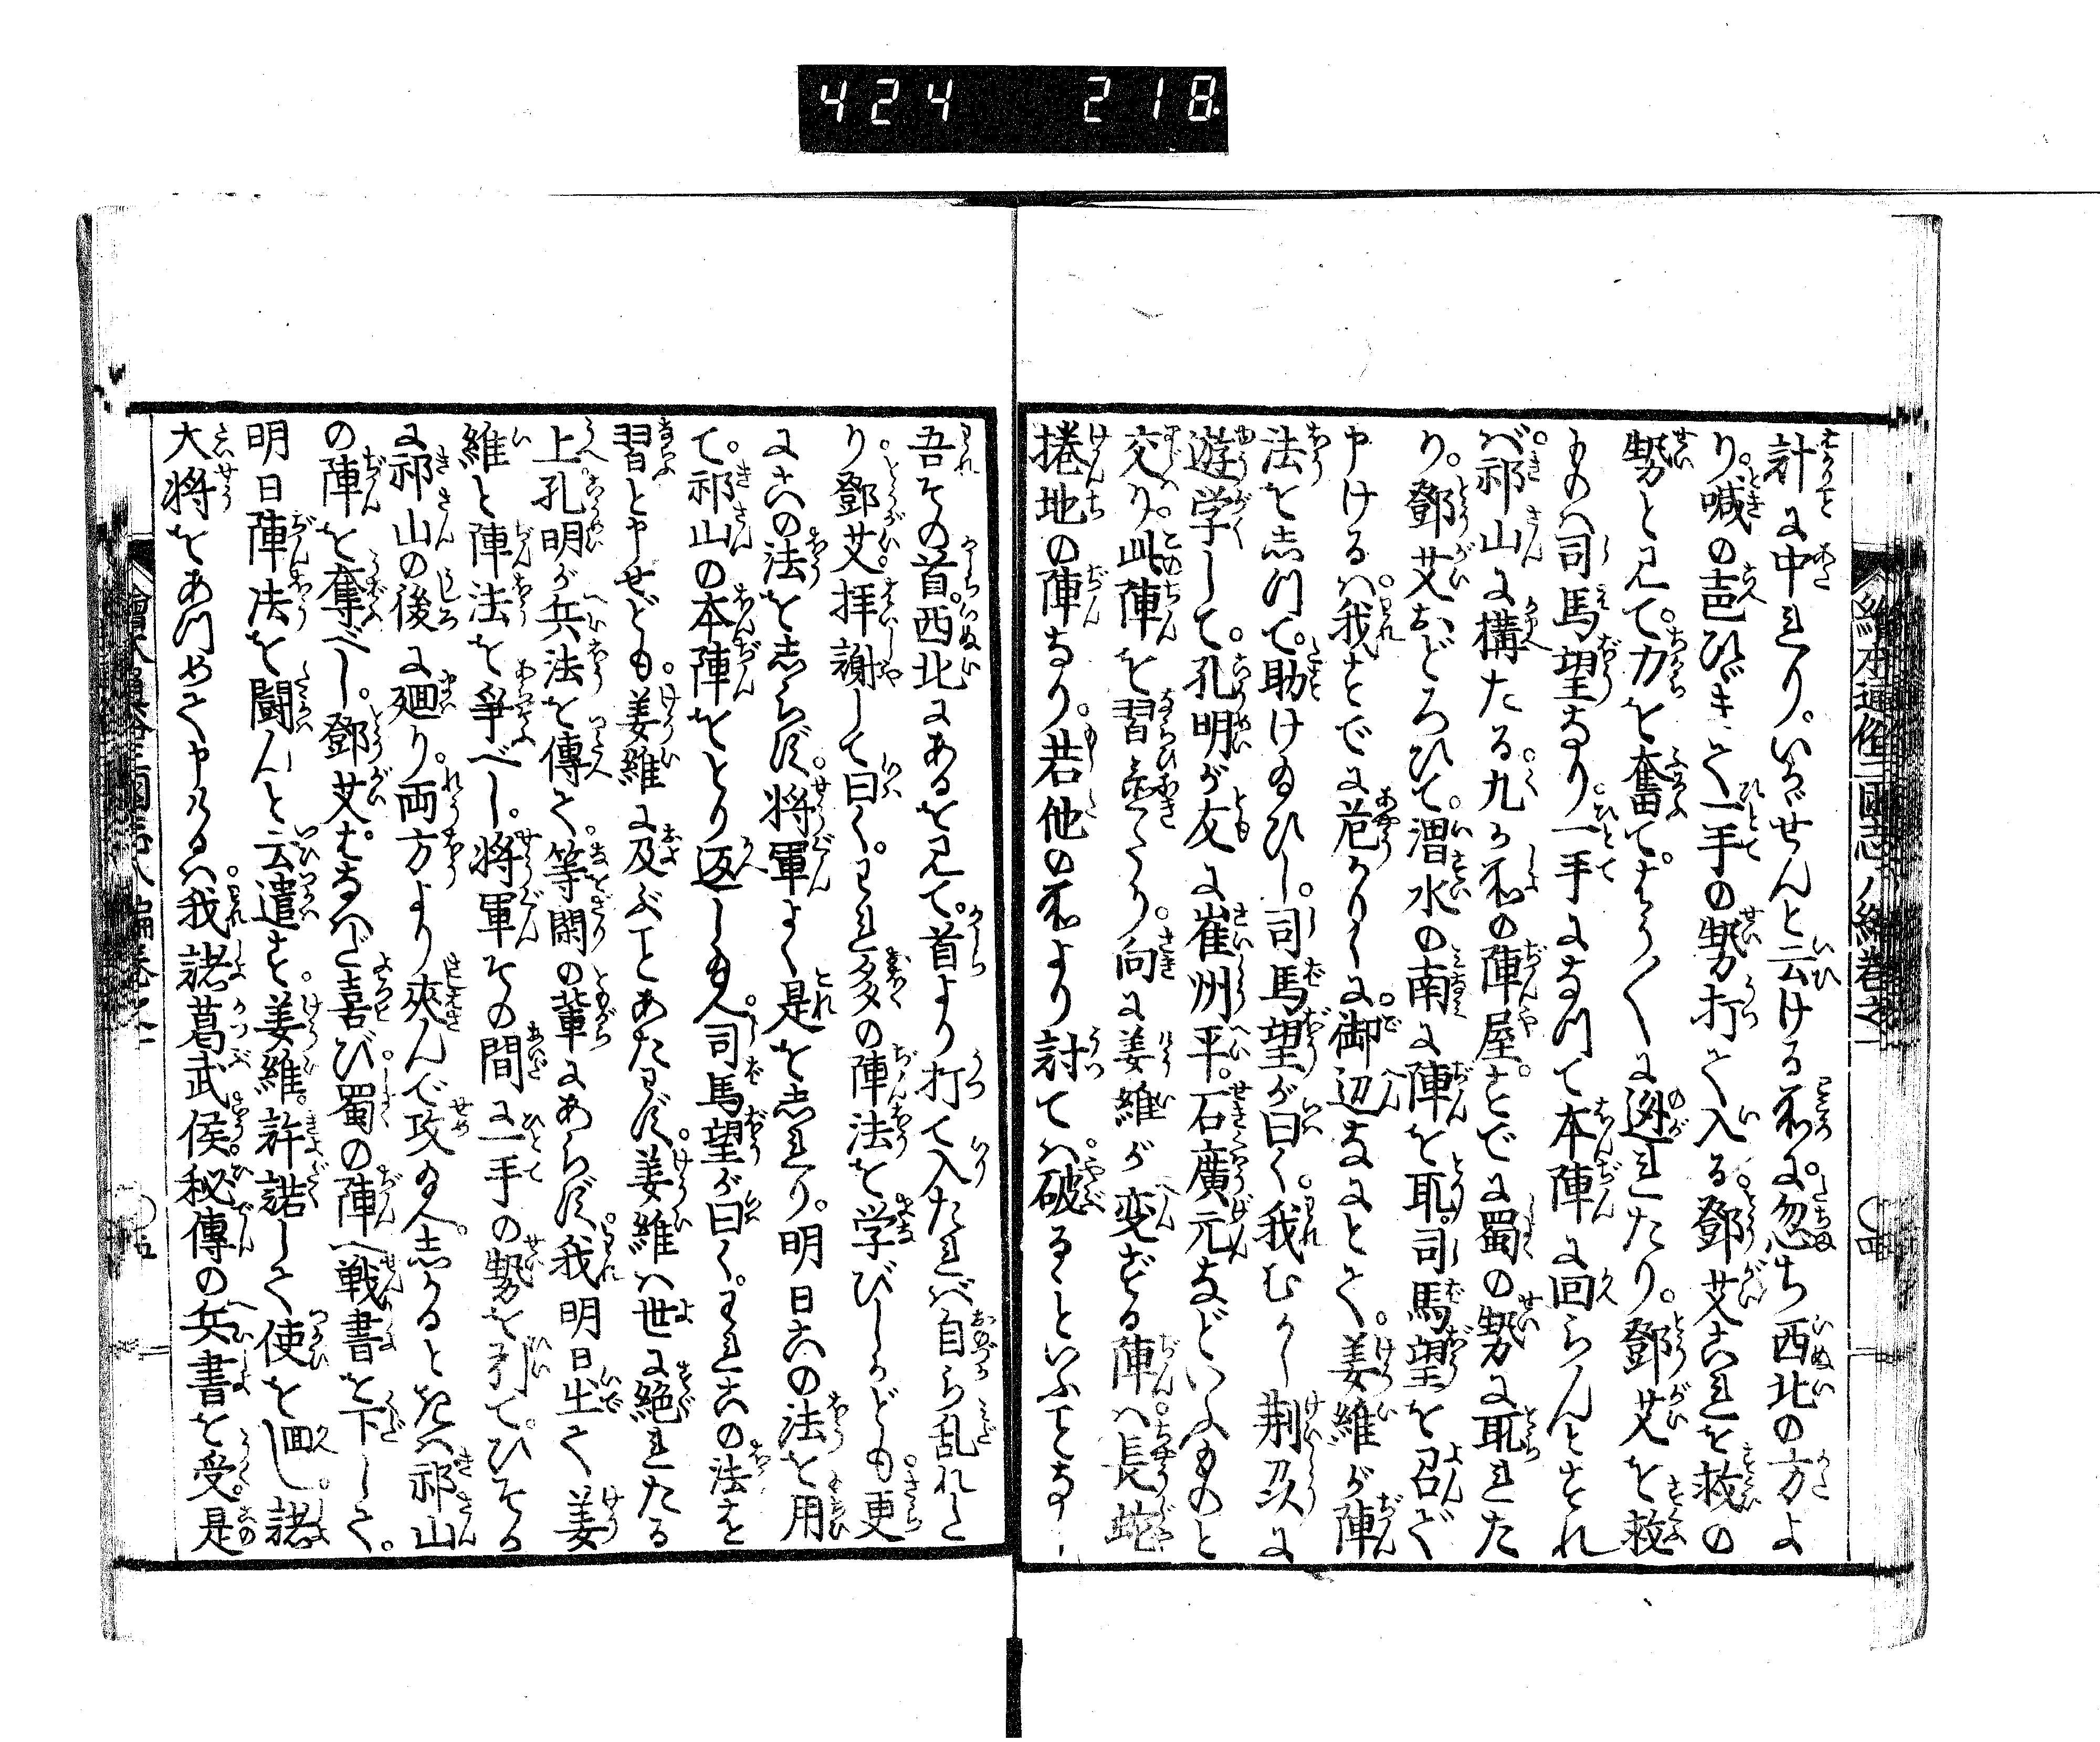 424 218
計に中れり。いかゞせんと云ける所に。忽ち西北の方よ
り。喊の声ひゞきて一手の勢打て入る。鄧艾これを救の
勢と見て。力を奮て。はう〱に遁れたり。鄧艾を救
ものハ司馬望なり。一手になつて本陣に回らんとすれ
ば。祁山に構たる。九ヶ所の陣屋。すでに蜀の勢に取れた
り。鄧艾おどろひて。渭水の南に陣を取。司馬望を召で
申けるハ。我すでに危かりしに。御辺なにとて。姜維が陣
法を志つて。助けゐひし。司馬望が曰く。我むかし荊州に
遊学して。孔明が友に崔州平。石廣元などいふものと
交り。此陣を習置たり。向に姜維が変ずる陣ハ。長蛇
捲地の陣なり。若他の所より討てハ。破るといふとなし
吾その首。西北にあるを見て。首より打て入たれバ自ら乱れた
り。鄧艾。拝謝して曰く。われ多の陣法を学びしかども。更
にこの法を志らず。将軍よく是を志れり。明日この法を用
て。祁山の本陣をとり返しゐへ。司馬望が曰く。われこの法を
習と申せども。姜維に及ぶとあたわず。姜維ハ世に絶れたる
上。孔明が兵法を傳て。等閑の輩にあらず。我明日出て姜
維と陣法を爭べし。将軍その間に一手の勢を引て。ひそか
に祁山の後に廻り。両方より夾んで攻ゐへ。志かるときハ祁山
の陣を奪べし。鄧艾。はなハだ喜び。蜀の陣へ戦書を下して。
明日陣法を闘んと云遣す。姜維。許諾して使を回し。諸
大将をあつめて申けるハ。我諸葛武侯。秘傳の兵書を受。是